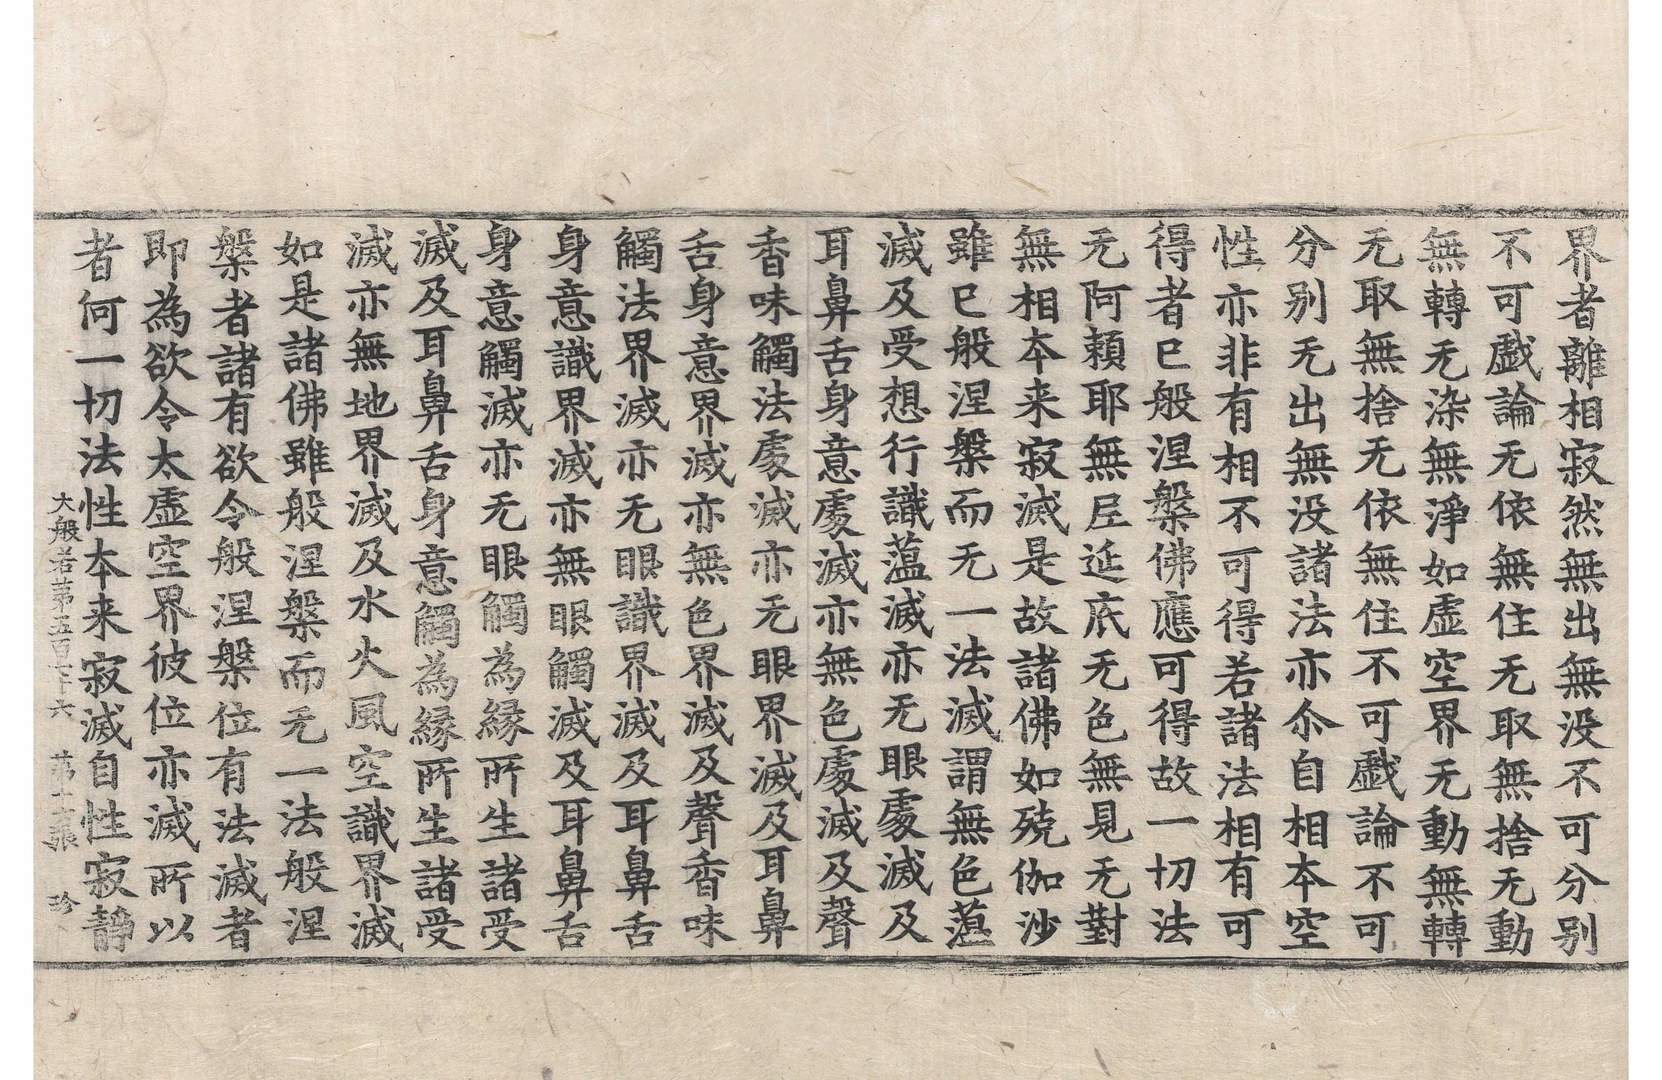 界者離相寂然無出無没不可分别
不可戲論无依無住无取無捨无動
無轉无染無淨如虚空界无動無轉
无取無捨无依無住不可戲論不可
分别无出無没諸法亦尒自相本空
性亦非有相不可得若諸法相有可
得者已般涅槃佛應可得故一切法
无阿頼耶無𡰱延底无色無見无對
無相本来寂滅是故諸佛如殑伽沙
雖已般涅槃而无一法滅謂無色薀
滅及受想行識薀滅亦无眼處滅及
耳鼻舌身意處滅亦無色處滅及聲
香味觸法處滅亦无眼界滅及耳鼻
舌身意界滅亦無色界滅及聲香味
觸法界滅亦无眼識界滅及耳鼻舌
身意識界滅亦無眼觸滅及耳鼻舌
身意觸滅亦无眼觸為縁所生諸受
滅及耳鼻舌身意觸為縁所生諸受
滅亦無地界滅及水火風空識界滅
如是諸佛雖般涅槃而无一法般涅
槃者諸有欲令般涅槃位有法滅者
即為欲令太虚空界彼位亦滅所以
者何一切法性本来寂滅自性寂靜
大般若第五百六十六 第十張 珍